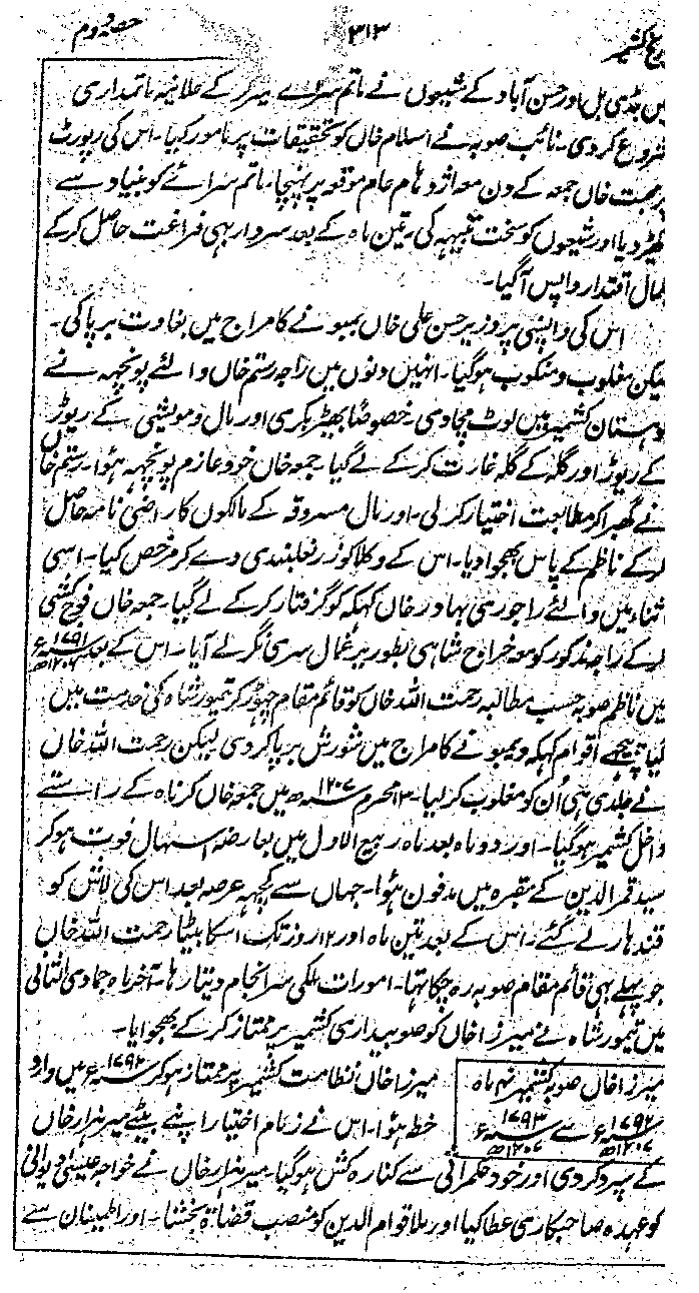 حصہ دوم ۳۱۳ کشمیر
بڈی بل اور حسن آباد کے شیعوں نے ماتم سرائے کر کے علانیہ ماتمداری
شروع کردی۔ نائب صوبہ نے اسلام خاں کو تحقیقات پر مامور کیا۔ اس کی رپورٹ
پر جمعہ خاں جمعہ کے دن معہ اژدہام عام موقعہ پر پہنچا۔ ماتم سرائے کو بنیاد سے
اور شیعوں کو سخت تنبیہہ کی۔ تین ماہ کے بعد سردار ہی فراغت حاصل کرکے
اقتدار واپس آگیا۔
اس کی واپسی پر وزیر حسن علی خاں بمبو نے کامراج میں بغاوت برپا کی۔
لیکن مغلوب و منکوب ہوگیا۔ انہیں دنوں میں راجہ رستم خاں والئے پونچہہ نے
کوہستان کشمیر میں لوٹ مچادی۔ خصوصاً بھیڑ بکری اور مال و مویشی کے ریوڑوں
کے ریوڑ اور گلہ کے گلہ غارت کرکے لے گیا۔ جمعہ خاں خود عازم پونچہہ ہوا۔ رستم خاں
نے گھبرا کر مطابعت اختیار کرلی۔ اور مال مسروقہ کے مالکوں کا راضی نامہ حاصل
کرکے ناظم کے پاس بھجوا دیا۔ اس کے وکلا کو زر نعلبندی دے کر مرخص کیا۔ اسی
اثناء میں والئے راجوری بہادر خان کہکہ کو گرفتار کرکے لے گیا۔ جمعہ خاں فوج کشی
کرکے راجہ مذکور کو معہ خراج شاہی بطور یرغمال سری نگر لے آیا۔ اس کے بعد ۱۷۹۱ء ۱۲۰۶ھ
میں ناظم صوبہ حسب مطالبہ رحمت اللہ خاں کو قائم مقام چھوڑ کر تیمور شاہ کی خدمت میں
گیا۔ پیچھے اقوام کہکہ و بمبو نے کامراج میں شورش برپا کردی لیکن رحمت اللہ خاں
نے جلدی ہی اُن کو مغلوب کرلیا۔ ۱۳ محرم ۱۲۰۷ھ میں جمعہ خاں کرناہ کے راستے
داخل کشمیر ہوگیا۔ اور دو ماہ بعد ماہ ربیع الاول میں بعارضہ اسہال فوت ہوکر
سید قمر الدین کے مقبرہ میں مدفون ہوا۔ جہاں سے کچھہ عرصہ بعد اس کی لاش کو
قندہار لے گئے۔ اس کے بعد تین ماہ اور ۱۲ روز تک اسکا بیٹا رحمت اللہ خاں
جو پہلے بھی قائم مقام صوبہ رہ چکا تھا۔ امورات ملکی سرانجام دیتا رہا۔ آخر ماہ جمادی الثانی
میں تیمور شاہ نے میرزا خاں کو صوبیداری کشمیر پر ممتاز کرکے بھجوایا۔
میرزا خاں صوبہ کشمیر نہ ماہ
۱۷۹۲ء ۱۲۰۷ھ سے ۱۷۹۳ء ۱۲۰۷ھ
میرزا خاں نظامت کشمیر پر ممتاز ہوکر ۱۷۹۲ء میں وارد
خطہ ہوا۔ اس نے زمام اختیار اپنے بیٹے میر ہزار خاں
کے سپرد کردی اور خود حکمرانی سے کنارہ کش ہوگیا۔ میر ہزار خاں نے خواجہ عیسیٰ دیوانی
کو عہدہ صاحبکاری عطا کیا اور ملا قوام الدین کو منصب قضاۃ بخشا۔ اور اطمینان سے